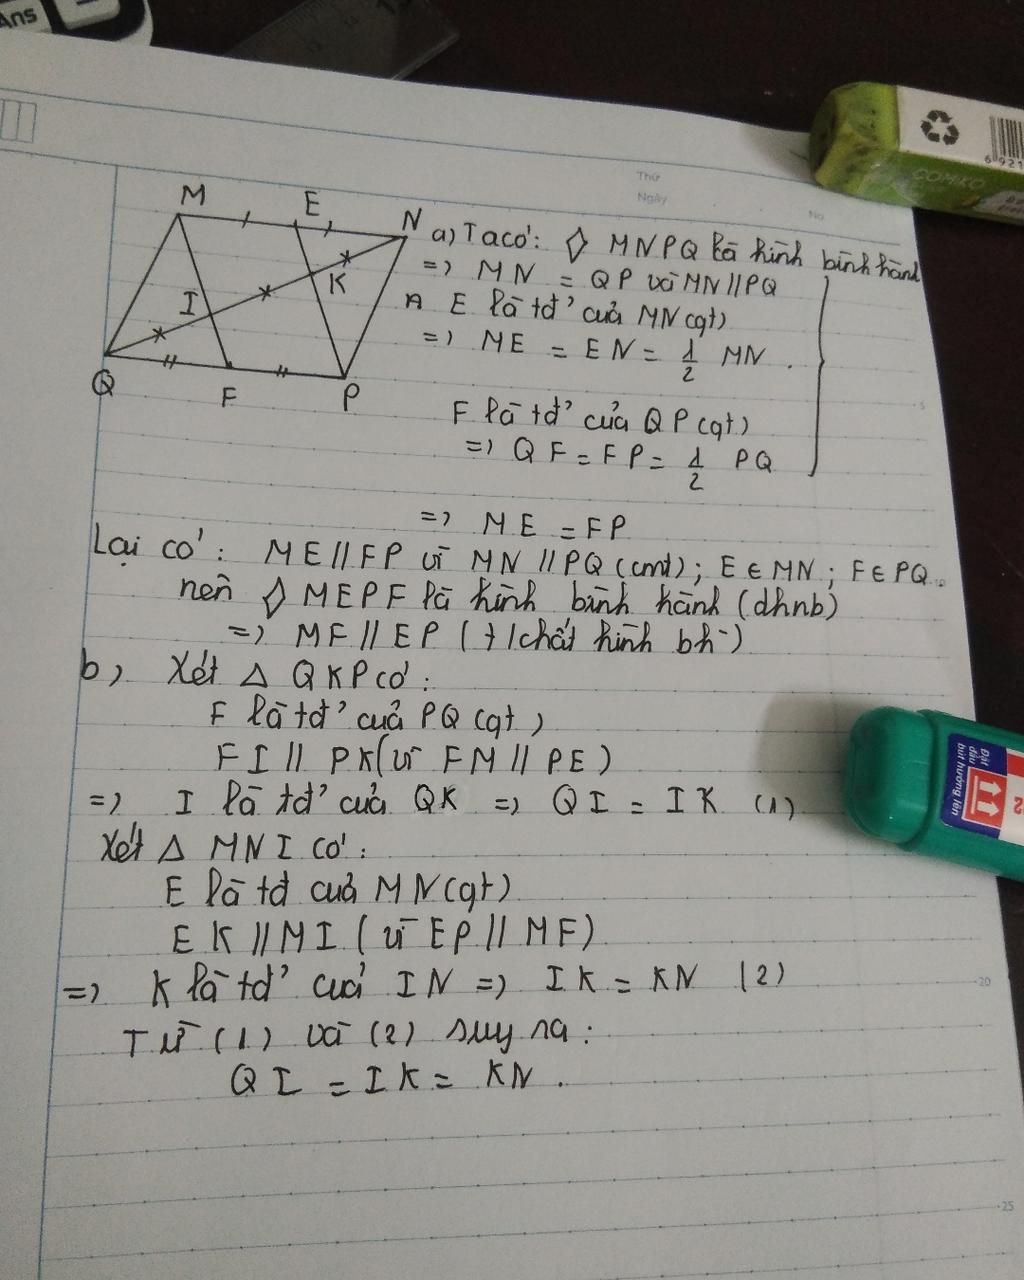 Ans
Thứ
Ngày
No
COMIKO
6 921
M E N
I K
Q F P
a) Ta có: ◊ MNPQ là hình bình hành
=> MN = QP và MN // PQ
E là tđ' của MN (gt)
=> ME = EN = 1/2 MN.
F là tđ' của QP (gt)
=> QF = FP = 1/2 PQ
=> ME = FP
Lại có: ME // FP vì MN // PQ (cmt); E ∈ MN; F ∈ PQ
nên ◊ MEPF là hình bình hành (dhnb)
=> MF // EP (t/chất hình bh)
b) Xét Δ QKP có:
F là tđ' của PQ (gt)
FI // PK (vì FM // PE)
=> I là tđ' của QK => QI = IK (1)
Xét Δ MNI có:
E là tđ của MN (gt)
EK // MI (vì EP // MF)
=> K là tđ' của IN => IK = KN (2)
Từ (1) và (2) suy ra:
QI = IK = KN.
Đặt đầu
bút hướng lên
5
20
25